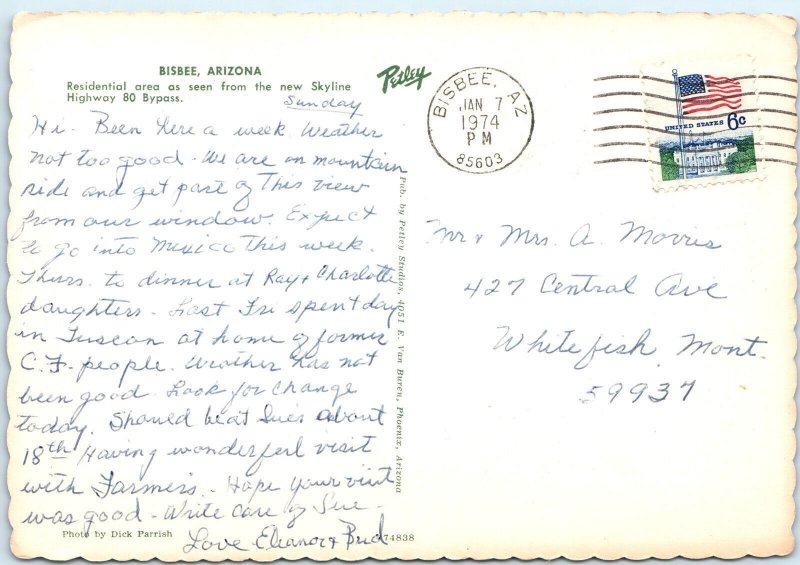 BISBEE, ARIZONA
Residential area as seen from the new Skyline
Highway 80 Bypass.
Petley
BISBEE, AZ
JAN 7
1974
PM
85603
UNITED STATES 6c
Sunday
Hi. Been here a week. Weather
not too good. We are on mountain
side and get part of This view
from our window. Expect
to go into Mexico This week.
Thurs. to dinner at Ray + Charlotte
daughters. Last Fri spent day
in Tuscon at home of former
C.F. people. Weather has not
been good. Look for change
today. Should be at Sue's about
18th Having wonderful visit
with Farmers. Hope your visit
was good. Write care of Sue.
Love Eleanor + Bud
Photo by Dick Parrish
74838
Pub. by Petley Studios, 4051 E. Van Buren, Phoenix, Arizona
Mr + Mrs. A. Morris
427 Central Ave
Whitefish, Mont.
59937